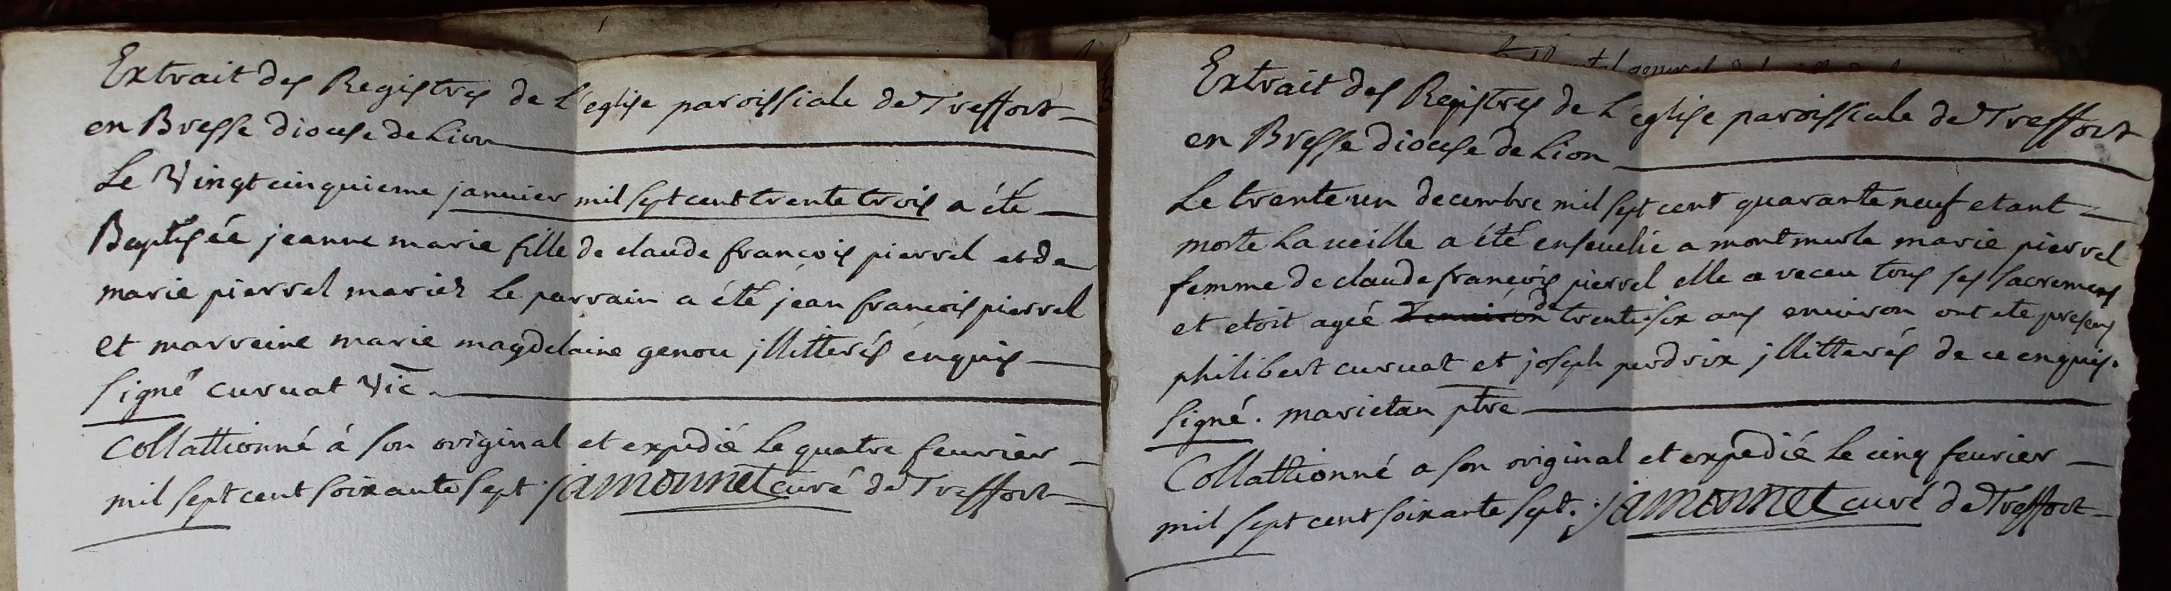 Extrait des Registres de L'eglise paroissiale de Treffort
en Bresse diocese de Lion
Le Vingt cinquieme janvier mil sept cent trente trois a été
Baptisée jeanne marie fille de claude françois pierrel et de
marie pierrel mariés Le parrain a été jean françois pierrel
et marreine marie magdelaine genou jllitterés enquis
signé curuat Vic.
Collattionné á son original et expedié Le quatre feurier
mil sept cent soixante sept. jamonnet curé de Treffort
Extrait des Registres de L'eglise paroissiale de Treffort
en Bresse diocese de Lion
Le trente un decembre mil sept cent quarante neuf etant
morte La ueille a été enseuelie a montmerle marie pierrel
femme de claude françois pierrel elle a receu tous ses sacremens
et etoit ageé d'enuiron de trente six ans enuiron ont ete presens
philibert curuat et joseph perdrix jllitterés de ce enquis.
signé. marietan ptre
Collattionné a son original et expedié Le cinq feurier
mil sept cent soixante sept. jamonnet curé de Treffort